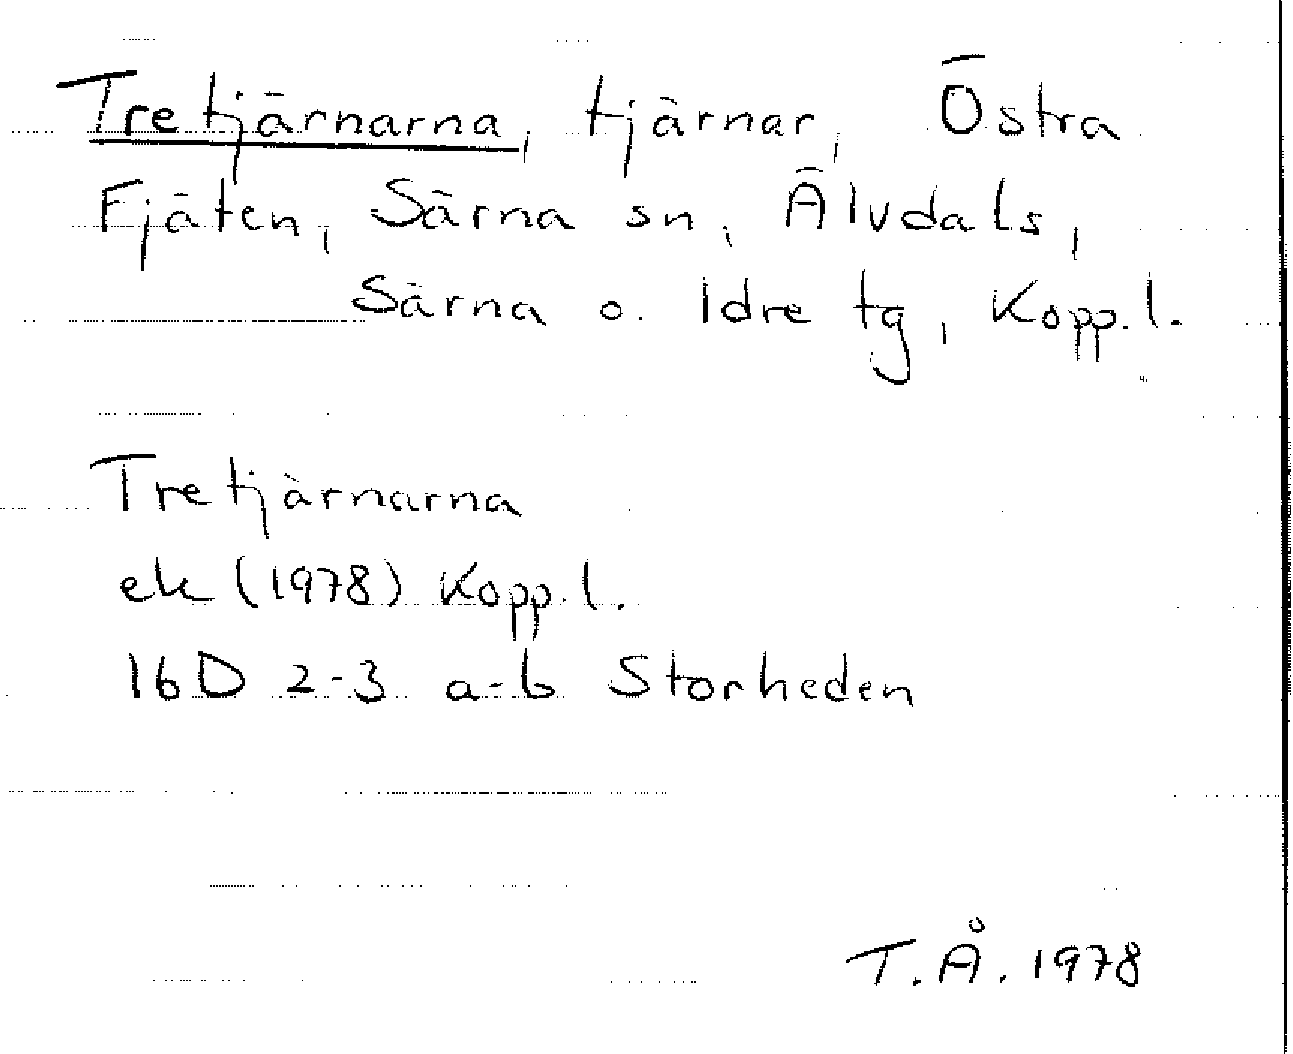 Tretjärnarna, tjärnar, Östra
Fjäten, Särna sn, Älvdals,
Särna o. Idre tg, Kopp.l.
Tretjärnarna
ek (1978) Kopp.l.
16D 2-3 a-b Storheden
T.Å. 1978